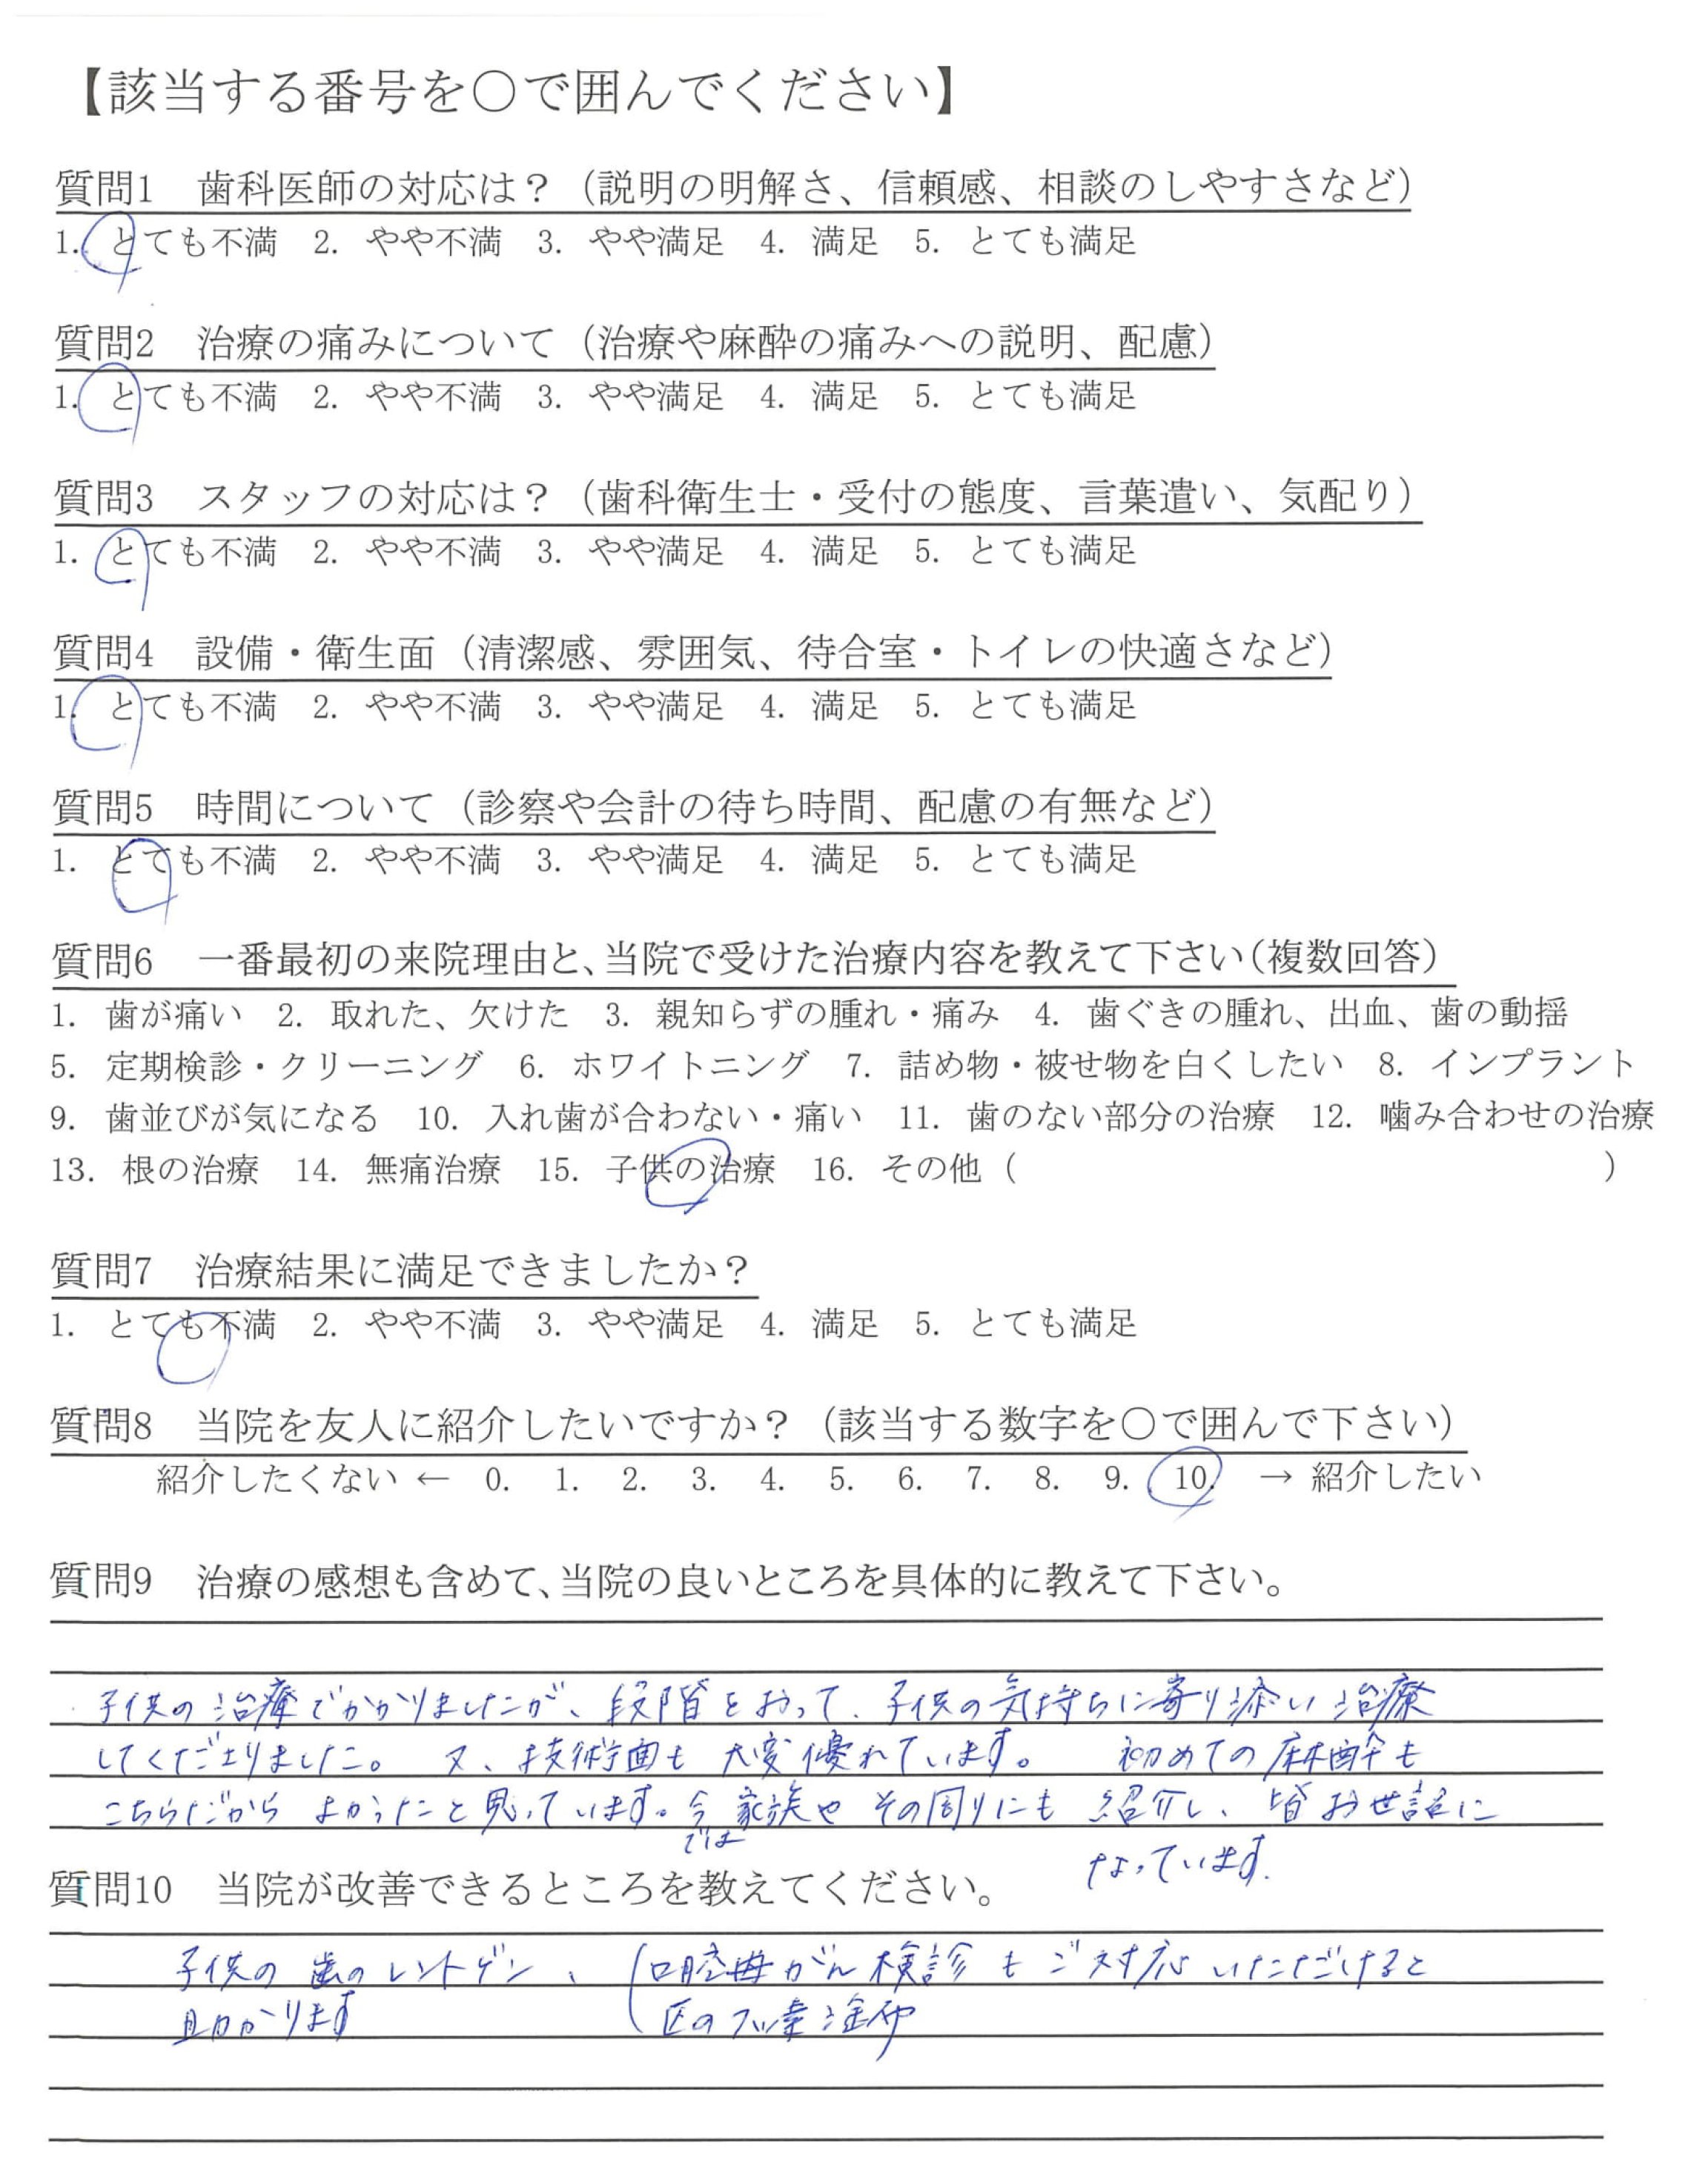 【該当する番号を〇で囲んでください】
質問1　歯科医師の対応は？（説明の明解さ、信頼感、相談のしやすさなど）
1. とても不満　2. やや不満　3. やや満足　4. 満足　5. とても満足
質問2　治療の痛みについて（治療や麻酔の痛みへの説明、配慮）
1. とても不満　2. やや不満　3. やや満足　4. 満足　5. とても満足
質問3　スタッフの対応は？（歯科衛生士・受付の態度、言葉遣い、気配り）
1. とても不満　2. やや不満　3. やや満足　4. 満足　5. とても満足
質問4　設備・衛生面（清潔感、雰囲気、待合室・トイレの快適さなど）
1. とても不満　2. やや不満　3. やや満足　4. 満足　5. とても満足
質問5　時間について（診察や会計の待ち時間、配慮の有無など）
1. とても不満　2. やや不満　3. やや満足　4. 満足　5. とても満足
質問6　一番最初の来院理由と、当院で受けた治療内容を教えて下さい（複数回答）
1. 歯が痛い　2. 取れた、欠けた　3. 親知らずの腫れ・痛み　4. 歯ぐきの腫れ、出血、歯の動揺
5. 定期検診・クリーニング　6. ホワイトニング　7. 詰め物・被せ物を白くしたい　8. インプラント
9. 歯並びが気になる　10. 入れ歯が合わない・痛い　11. 歯のない部分の治療　12. 噛み合わせの治療
13. 根の治療　14. 無痛治療　15. 子供の治療　16. その他（　　　　　）
質問7　治療結果に満足できましたか？
1. とても不満　2. やや不満　3. やや満足　4. 満足　5. とても満足
質問8　当院を友人に紹介したいですか？（該当する数字を〇で囲んで下さい）
紹介したくない ← 0. 1. 2. 3. 4. 5. 6. 7. 8. 9. 10. → 紹介したい
質問9　治療の感想も含めて、当院の良いところを具体的に教えて下さい。
子供の治療でかかりましたが、段階をおって、子供の気持ちに寄り添い治療
してくださりました。又、技術面も大変優れています。初めての麻酔も
こちらだからよかったと思っています。今では家族やその周りにも紹介し、皆お世話に
なっています。
質問10　当院が改善できるところを教えてください。
子供の歯のレントゲン、（口腔がん検診もご対応いただけると
助かります　区のフッ素塗布